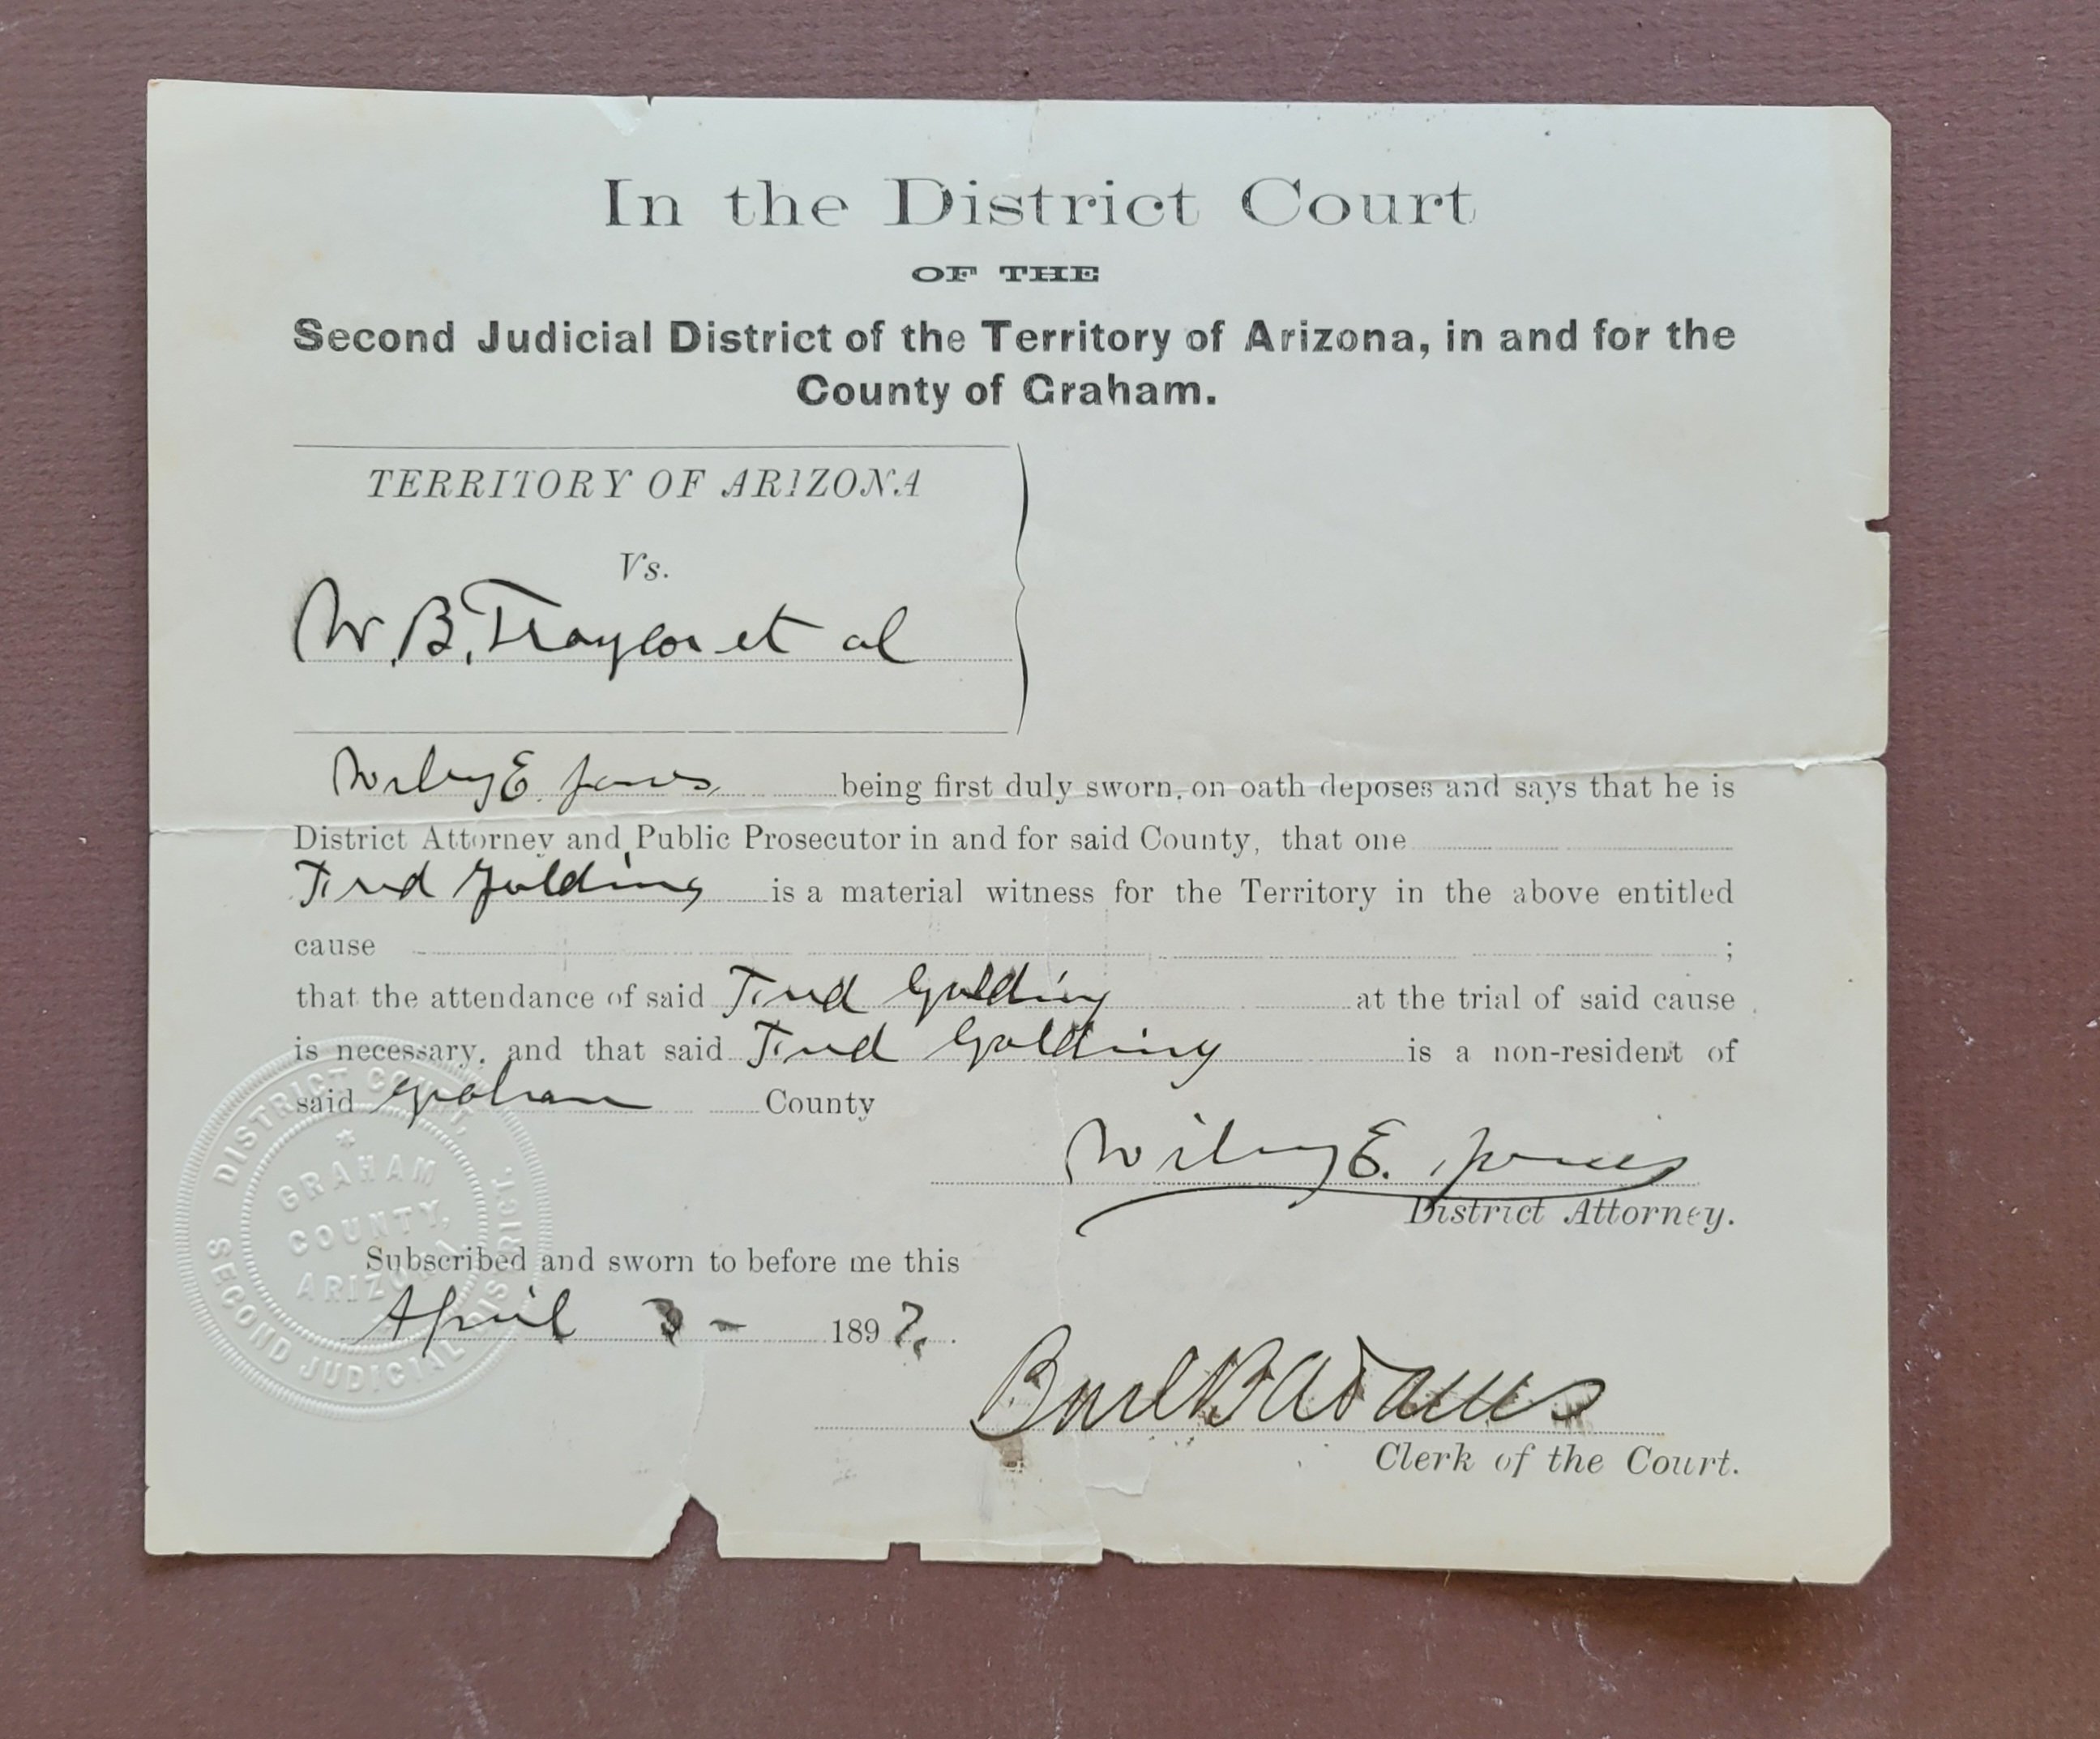 In the District Court
OF THE
Second Judicial District of the Territory of Arizona, in and for the
County of Graham.
TERRITORY OF ARIZONA
Vs.
W. B. Traylor et al
Wiley E. Jones being first duly sworn, on oath deposes and says that he is
District Attorney and Public Prosecutor in and for said County, that one
Fred Golding is a material witness for the Territory in the above entitled
cause ;
that the attendance of said Fred Golding at the trial of said cause
is necessary, and that said Fred Golding is a non-resident of
said Graham County
Wiley E. Jones
District Attorney.
Subscribed and sworn to before me this
April 3 - 1897.
B. Adams
Clerk of the Court.
DISTRICT COURT,
SECOND JUDICIAL DISTRICT.
GRAHAM
COUNTY,
ARIZONA